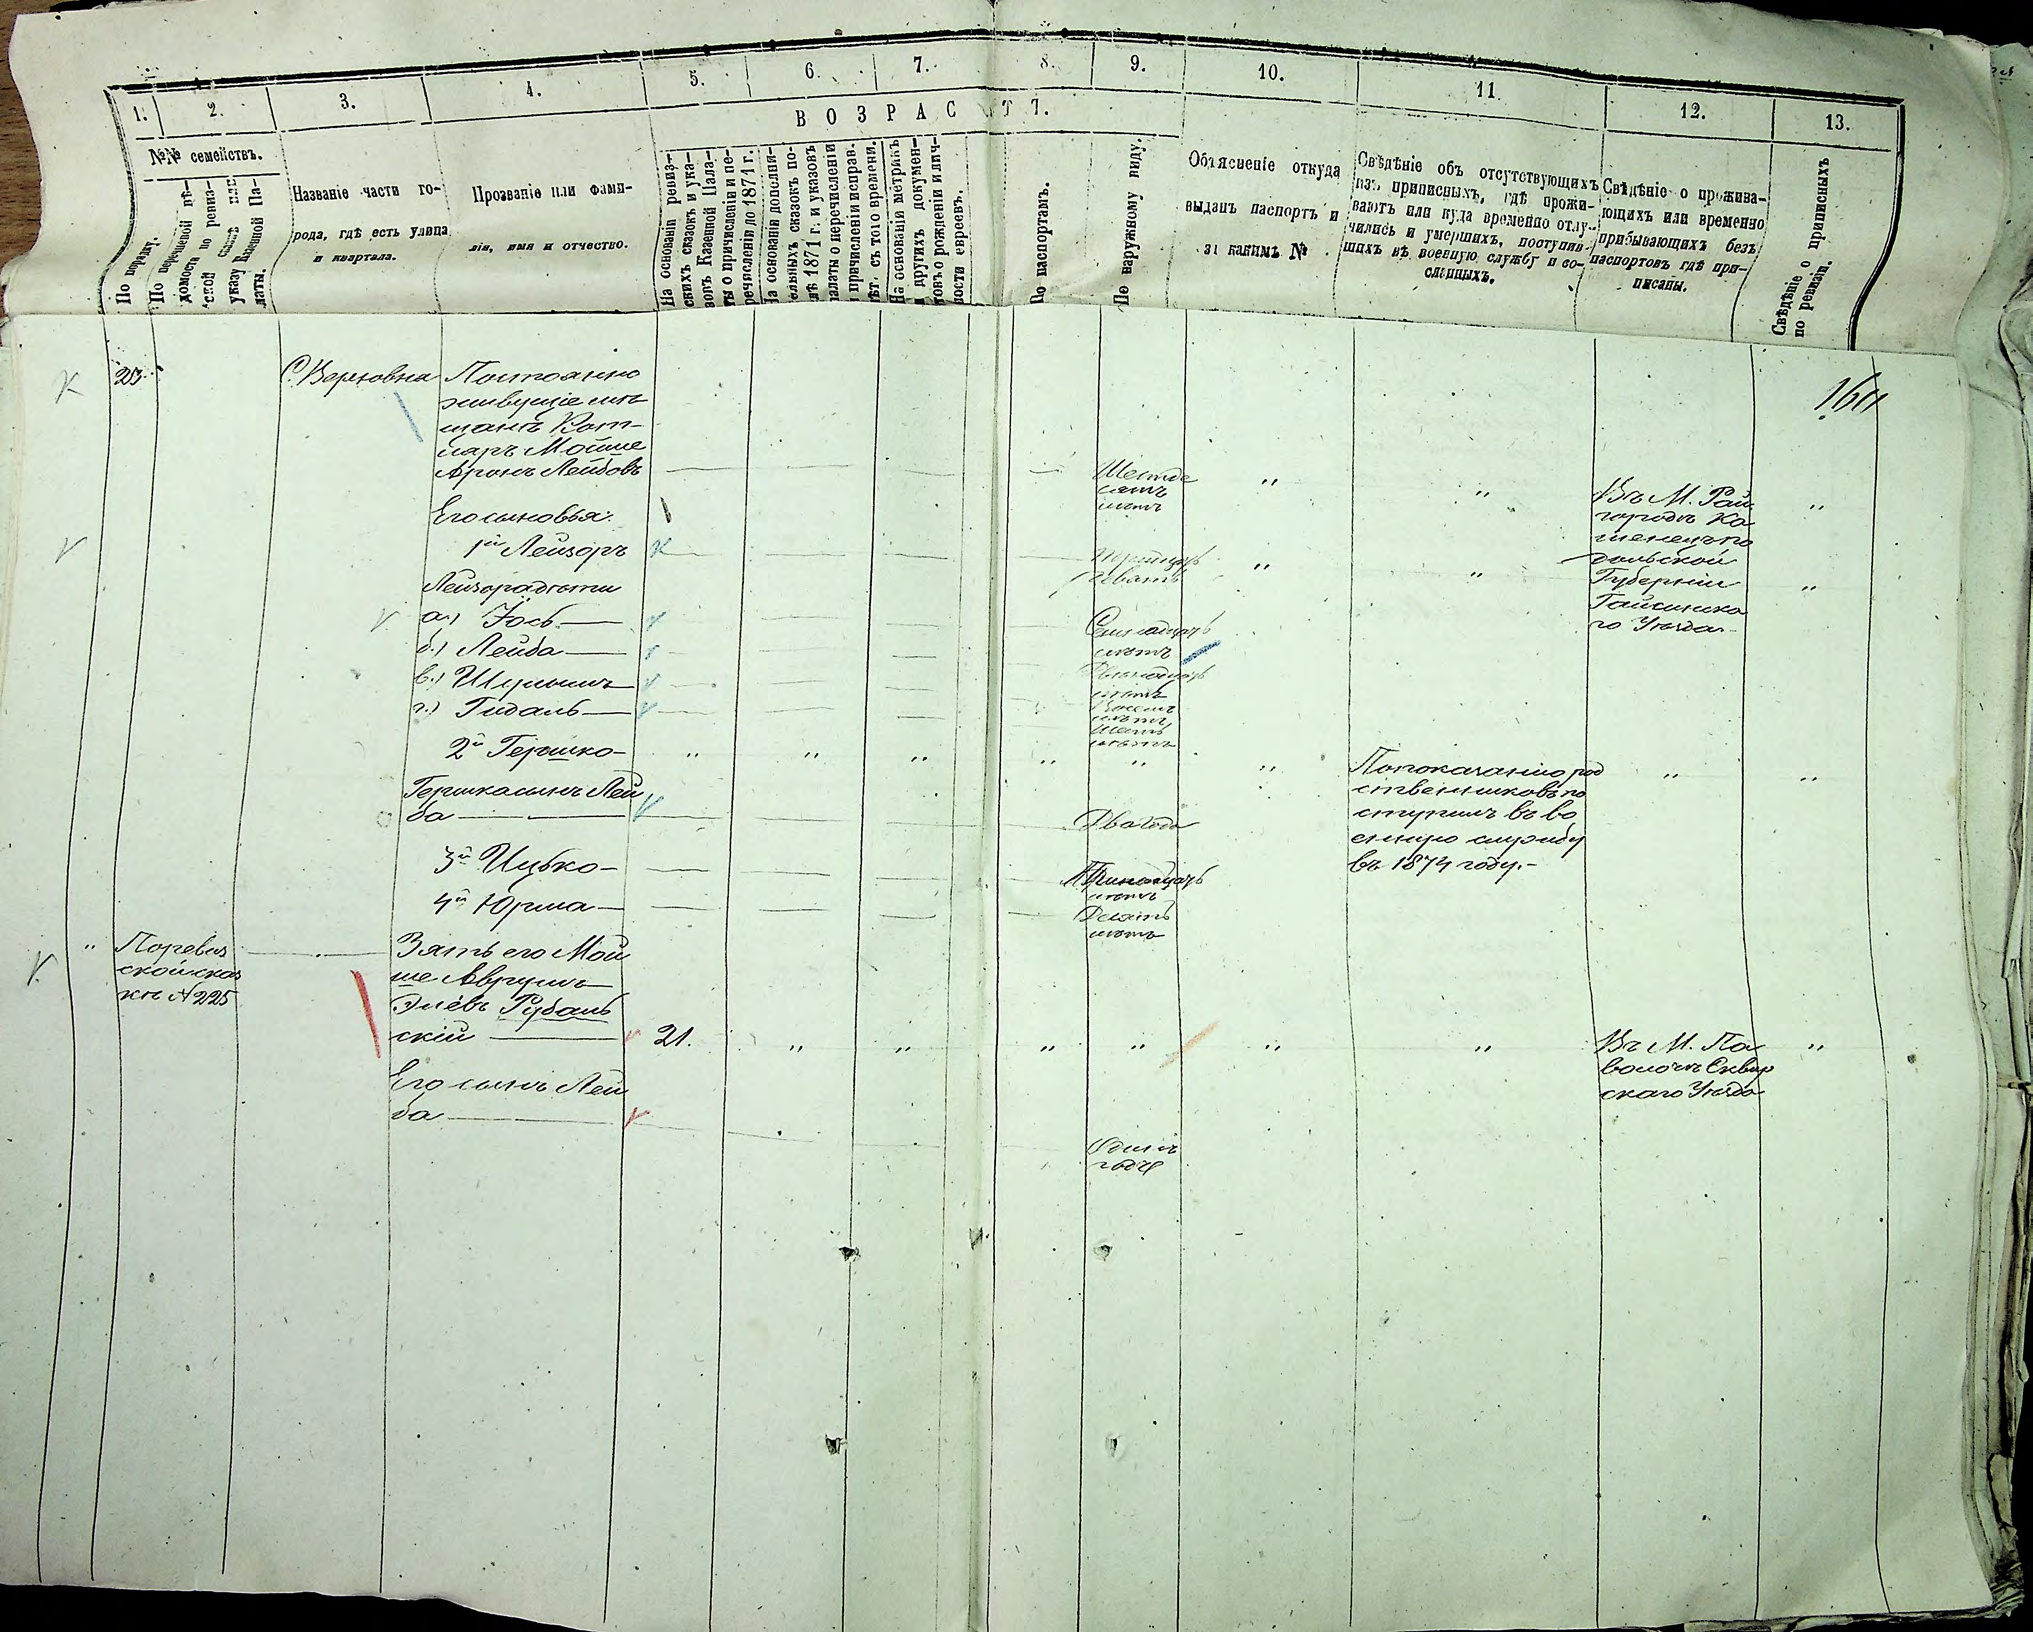 1. 2. 3. 4. 5. 6. 7. 8. 9. 10. 11. 12. 13.
В О З Р А С Т Ъ.
№№ семействъ.
По порядку.
По перечневой вѣ-
домости по ревиз-
ской сказкѣ или
указу Казенной Па-
латы.
Названіе части го-
рода, гдѣ есть улица
и квартала.
Прозваніе или фами-
лія, имя и отчество.
На основаніи ревиз-
скихъ сказокъ и ука-
зовъ Казенной Пала-
ты о причисленіи и пе-
речисленіи до 1871 г.
На основаніи дополни-
тельныхъ сказокъ по-
слѣ 1871 г. и указовъ
палаты о перечисленіи
и причисленіи исправ.
лѣт. съ того времени.
На основаніи метрикъ
и другихъ докумен-
товъ о рожденіи и лич-
ности евреевъ.
По паспортамъ.
По наружному виду.
Объясненіе откуда
выданъ паспортъ и
за какимъ №
Свѣдѣніе объ отсутствующихъ
изъ приписныхъ, гдѣ прожи-
ваютъ или куда временно отлу-
чились и умершихъ, поступив-
шихъ въ военную службу и со-
сланныхъ.
Свѣдѣніе о прожива-
ющихъ или временно
прибывающихъ безъ
паспортовъ гдѣ при-
писаны.
Свѣдѣніе о приписныхъ
по ревизіи.
С. Верховна
Постоянно
живущіе мѣ-
щанъ Кот-
ляръ Мойше
Аронъ Лейбовъ
Шестде
сятъ
лѣтъ
Въ М. Рай
городѣ Ка
менецъ по
дольской
Губерніи
Гайсинска
го Уѣзда
Его сыновья:
1й Лейзоръ
Тридцать
девять
Лейзора дѣти
а.) Іось
Семнадцать
лѣтъ
б.) Лейба
Двѣнадцать
лѣтъ
в.) Шулимъ
Восемь
лѣтъ
г.) Гидаль
Шесть
лѣтъ
2й Гершко
По показанію род
ственниковъ по
ступилъ въ во
енную службу
въ 1874 году.
Гершка сынъ Лей
ба
Два года
3й Ицько
лѣтъ
4й Юрма
Десять
лѣтъ
По ревиз
ской сказ
кѣ № 225
Зять его Мой
ше Аврумъ
Элевъ Рубань
скій
21.
Въ М. Па
волочъ Сквир
скаго Уѣзда
Его сынъ Лей
ба
Одинъ
годъ